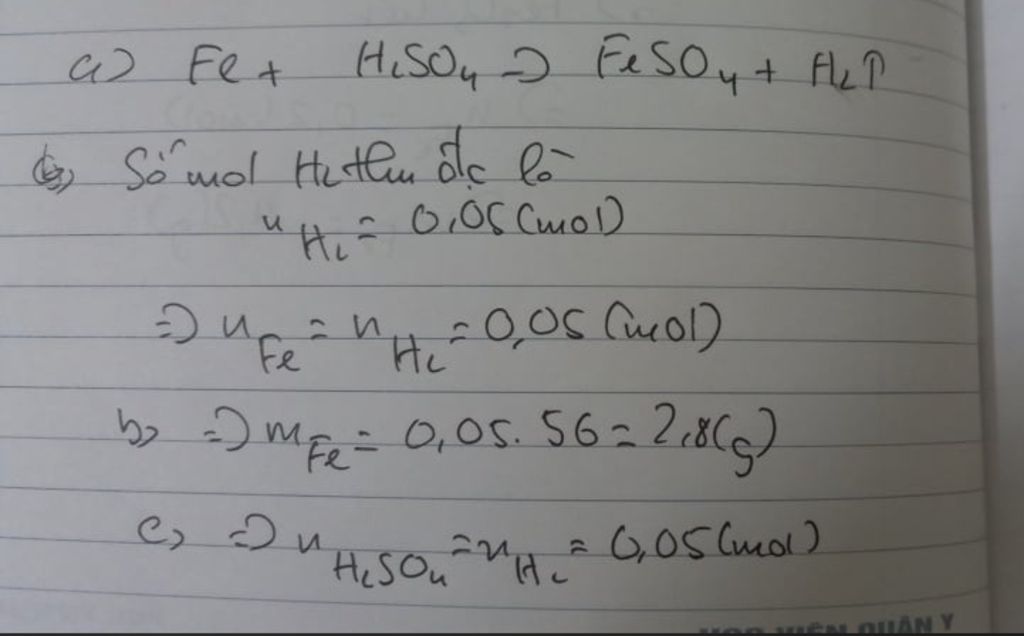 a) Fe + H₂SO₄ → FeSO₄ + H₂↑
b) Số mol H₂ thu đc là
n H₂ = 0,05 (mol)
=> n Fe = n H₂ = 0,05 (mol)
b) => m Fe = 0,05 . 56 = 2,8 (g)
c) => n H₂SO₄ = n H₂ = 0,05 (mol)
HỌC VIỆN QUÂN Y